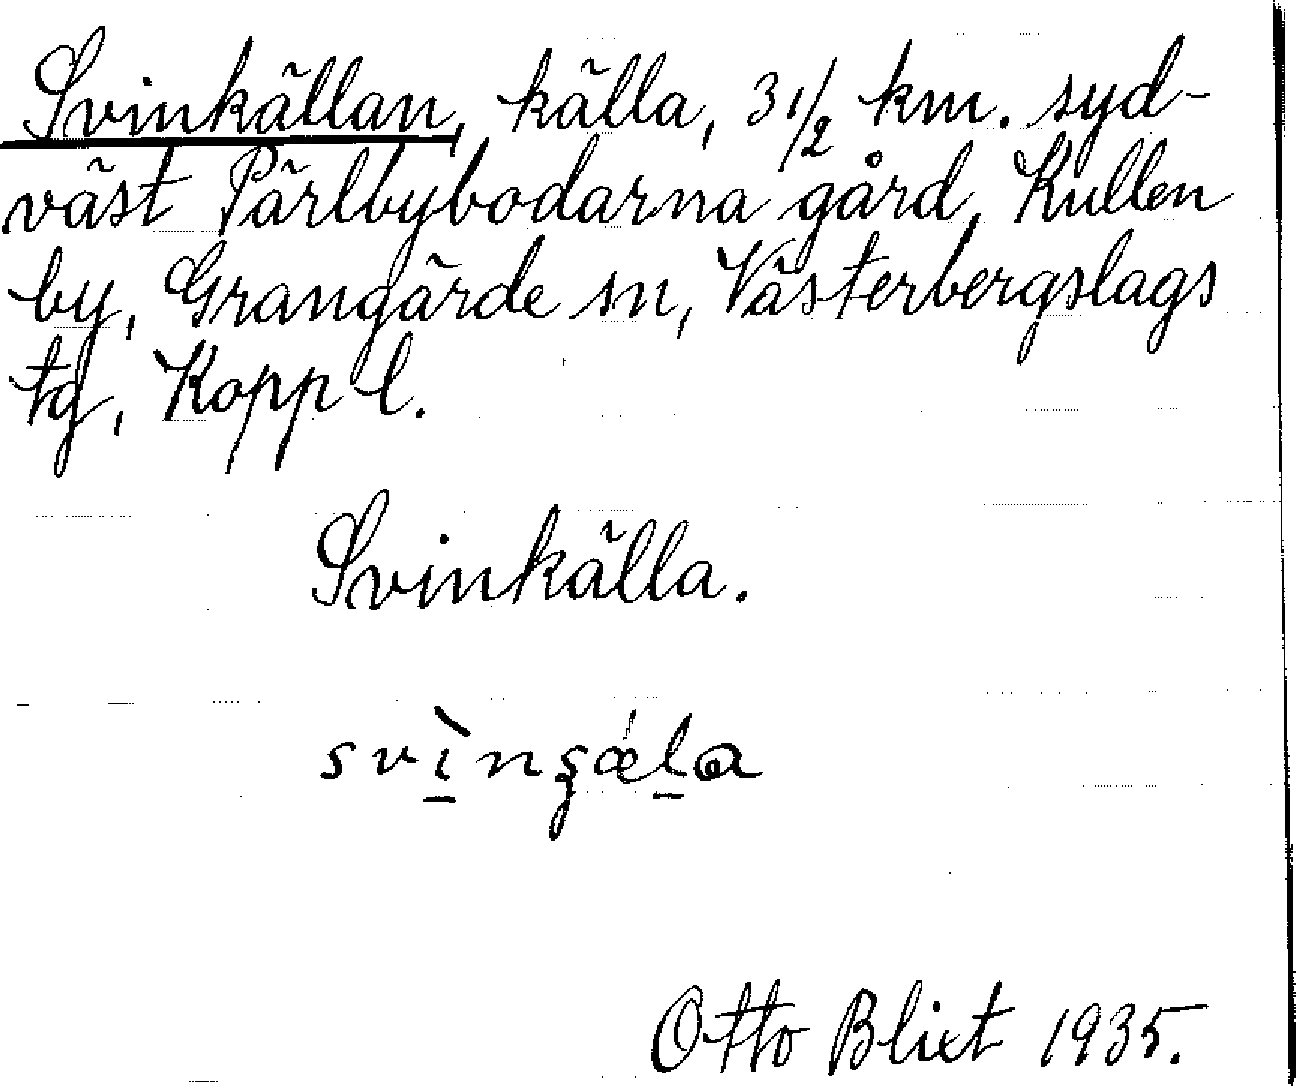 Svinkällan, källa, 3 1/2 km. syd-
väst Pärlbybodarna gård, Kullen
by, Grangärde sn, Västerbergslags
tg, Kopp l.
Svinkälla.
svì̱nʂǽḻa
Otto Blixt 1935.